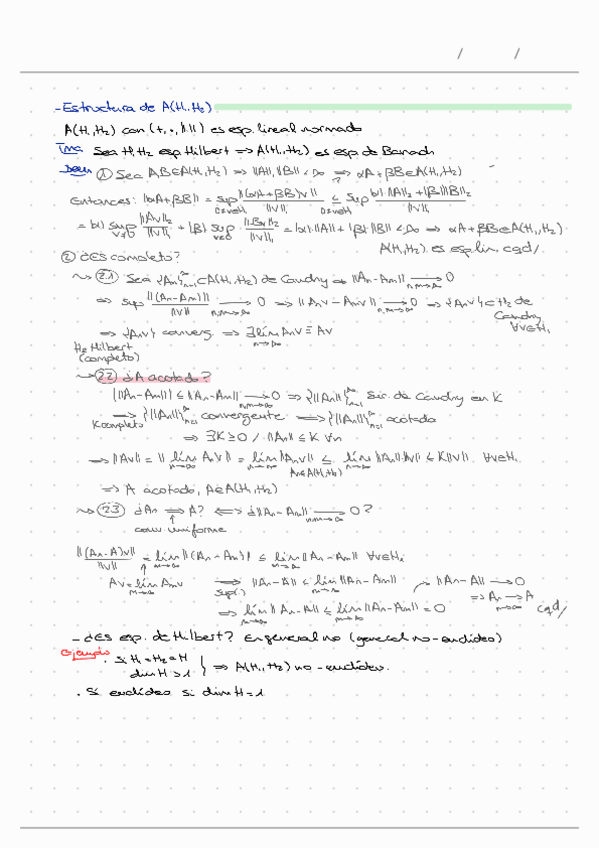 / /
- Estructura de A(H₁,H₂)
A(H₁,H₂) con (+,·,‖ ‖) es esp. lineal normado
Tma Sea H₁,H₂ esp Hilbert ⟹ A(H₁,H₂) es esp. de Banach
Dem ① Sea A,B∈A(H₁,H₂) ⟹ ‖A‖,‖B‖<∞ ⟹? αA+βB∈A(H₁,H₂)
Entonces: ‖αA+βB‖ = sup_{0≠v∈H₁} ‖(αA+βB)v‖/‖v‖₁ ≤ sup_{0≠v∈H₁} |α| ‖Av‖₂+|β|‖Bv‖₂/‖v‖₁
= |α| sup_{v≠0} ‖Av‖₂/‖v‖₁ + |β| sup_{v≠0} ‖Bv‖₂/‖v‖₁ = |α|·‖A‖+|β|·‖B‖<∞ ⟹ αA+βB∈A(H₁,H₂)
A(H₁,H₂) es esp. lin. cqd/
② ¿Es completo?
⤳ 2.1 Sea {An}ₙ₌₁^∞ ⊂A(H₁,H₂) de Cauchy ⟹ ‖An-Am‖ ⟶_{n,m→∞} 0
⟹ sup ‖(An-Am)‖/‖v‖ ⟶_{n,m→∞} 0 ⟹ ‖Anv-Amv‖ ⟶_{n,m→∞} 0 ⟹ {Anv}⊂H₂ de
Cauchy
∀v∈H₁
⟹ {Anv} converg. ⟹ ∃lim_{n→∞} Anv ≡ Av
H₂ Hilbert
(completo)
⤳ 2.2 ¿A acotado?
|‖An‖-‖Am‖| ≤ ‖An-Am‖ ⟶_{n,m→∞} 0 ⟹ {‖An‖}ₙ₌₁^∞ suc. de Cauchy en K
⟹ {‖An‖}ₙ₌₁^∞ convergente ⟹ {‖An‖}ₙ₌₁^∞ acotada
K completo
⟹ ∃K≥0 / ‖An‖ ≤ K ∀n
⟹ ‖Av‖ = ‖lim_{n→∞} Anv‖ = lim_{n→∞} ‖Anv‖ ≤ lim_{n→∞} ‖An‖·‖v‖ ≤ K‖v‖ ∀v∈H₁
An∈A(H₁,H₂)
⟹ A acotado, A∈A(H₁,H₂)
⤳ 2.3 ¿An ⟹ A? ⟺ ¿‖An-Am‖ ⟶_{n,m→∞} 0?
↑
conv. uniforme
‖(An-A)v‖/‖v‖ = lim_{m→∞} ‖(An-Am)‖ ≤ lim_{m→∞} ‖An-Am‖ ∀v∈H₁
Av=lim_{m→∞} Amv ⟹_{sup()} ‖An-A‖ ≤ lim_{m→∞} ‖An-Am‖ ‖An-A‖ ⟶ 0
⟹ lim_{n→∞} ‖An-A‖ ≤ lim_{n,m→∞} ‖An-Am‖ = 0 ⟹ An ⟶_{n→∞} A cqd/
- ¿Es esp. de Hilbert? En general no (general no-euclídeo)
Ejemplo · Si H₁=H₂=H
dim H>1 } ⟹ A(H₁,H₂) no-euclídeo.
· Sí euclídeo si dim H=1